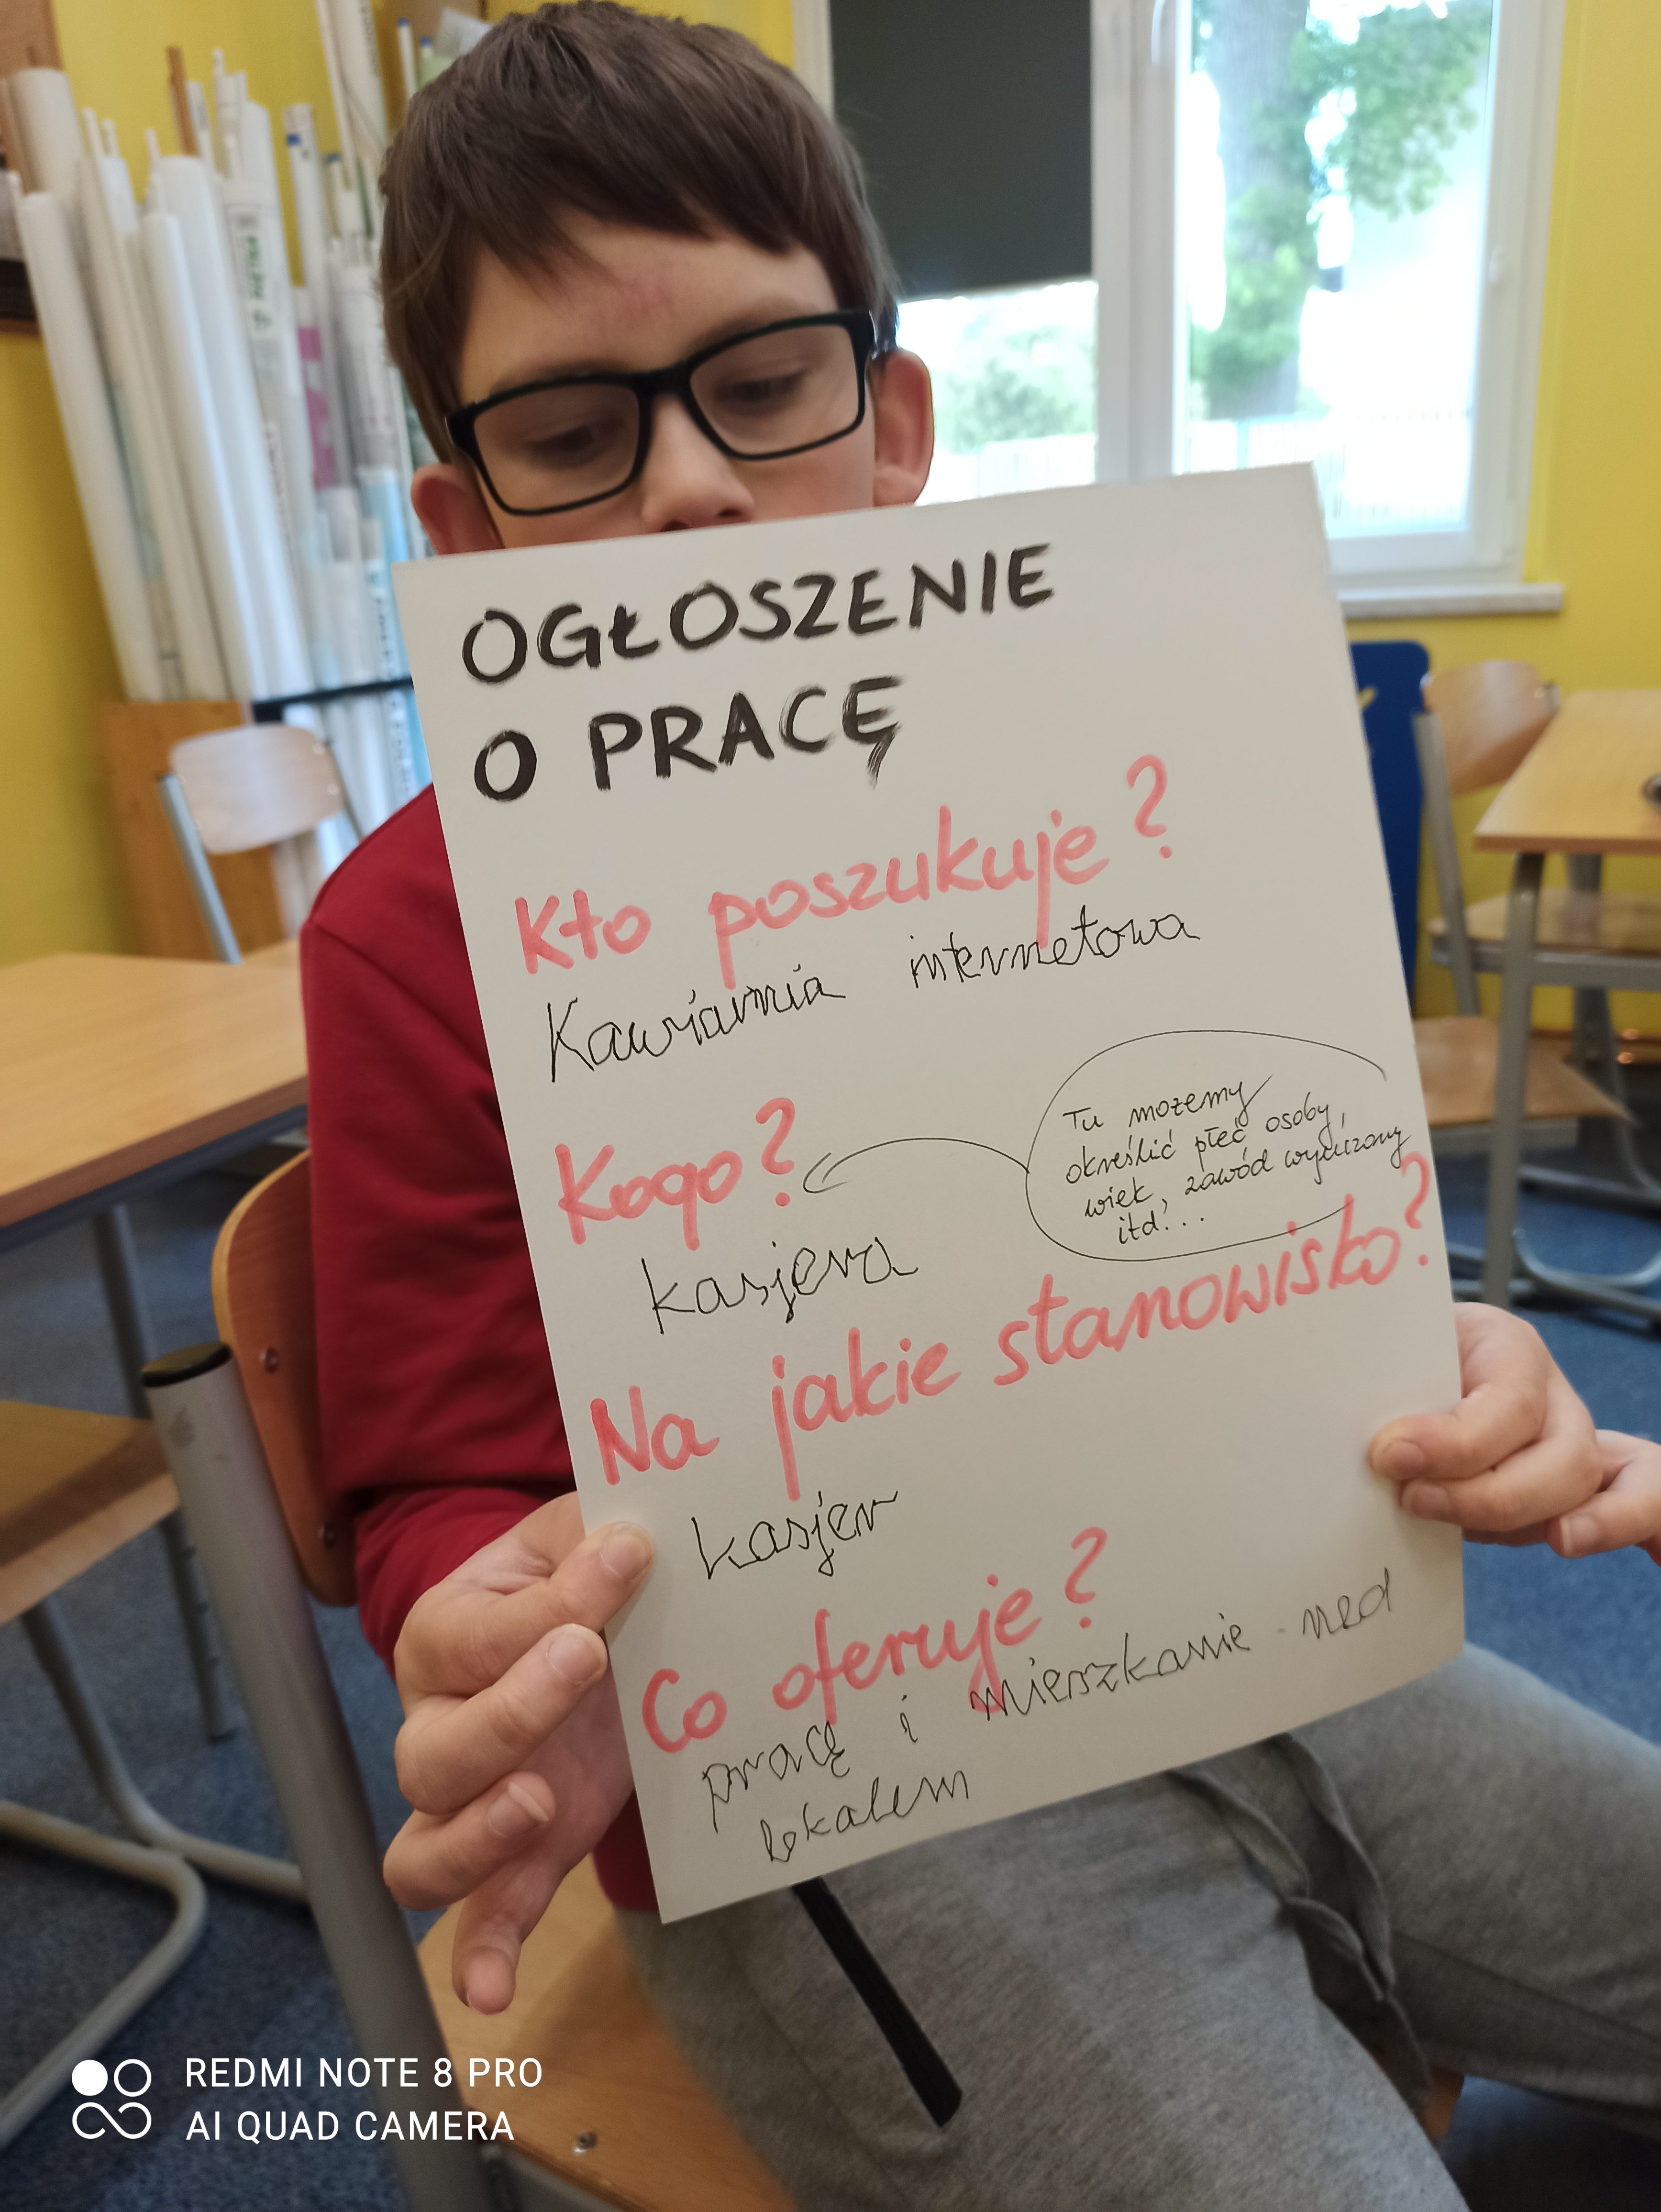 OGŁOSZENIE
O PRACĘ
Kto poszukuje?
Kawiarnia internetowa
Kogo?
Tu możemy
określić płeć osoby,
wiek, zawód wyuczony
itd...
kasjera
Na jakie stanowisko?
kasjer
Co oferuje?
pracę i mieszkanie nad
lokalem
REDMI NOTE 8 PRO
AI QUAD CAMERA